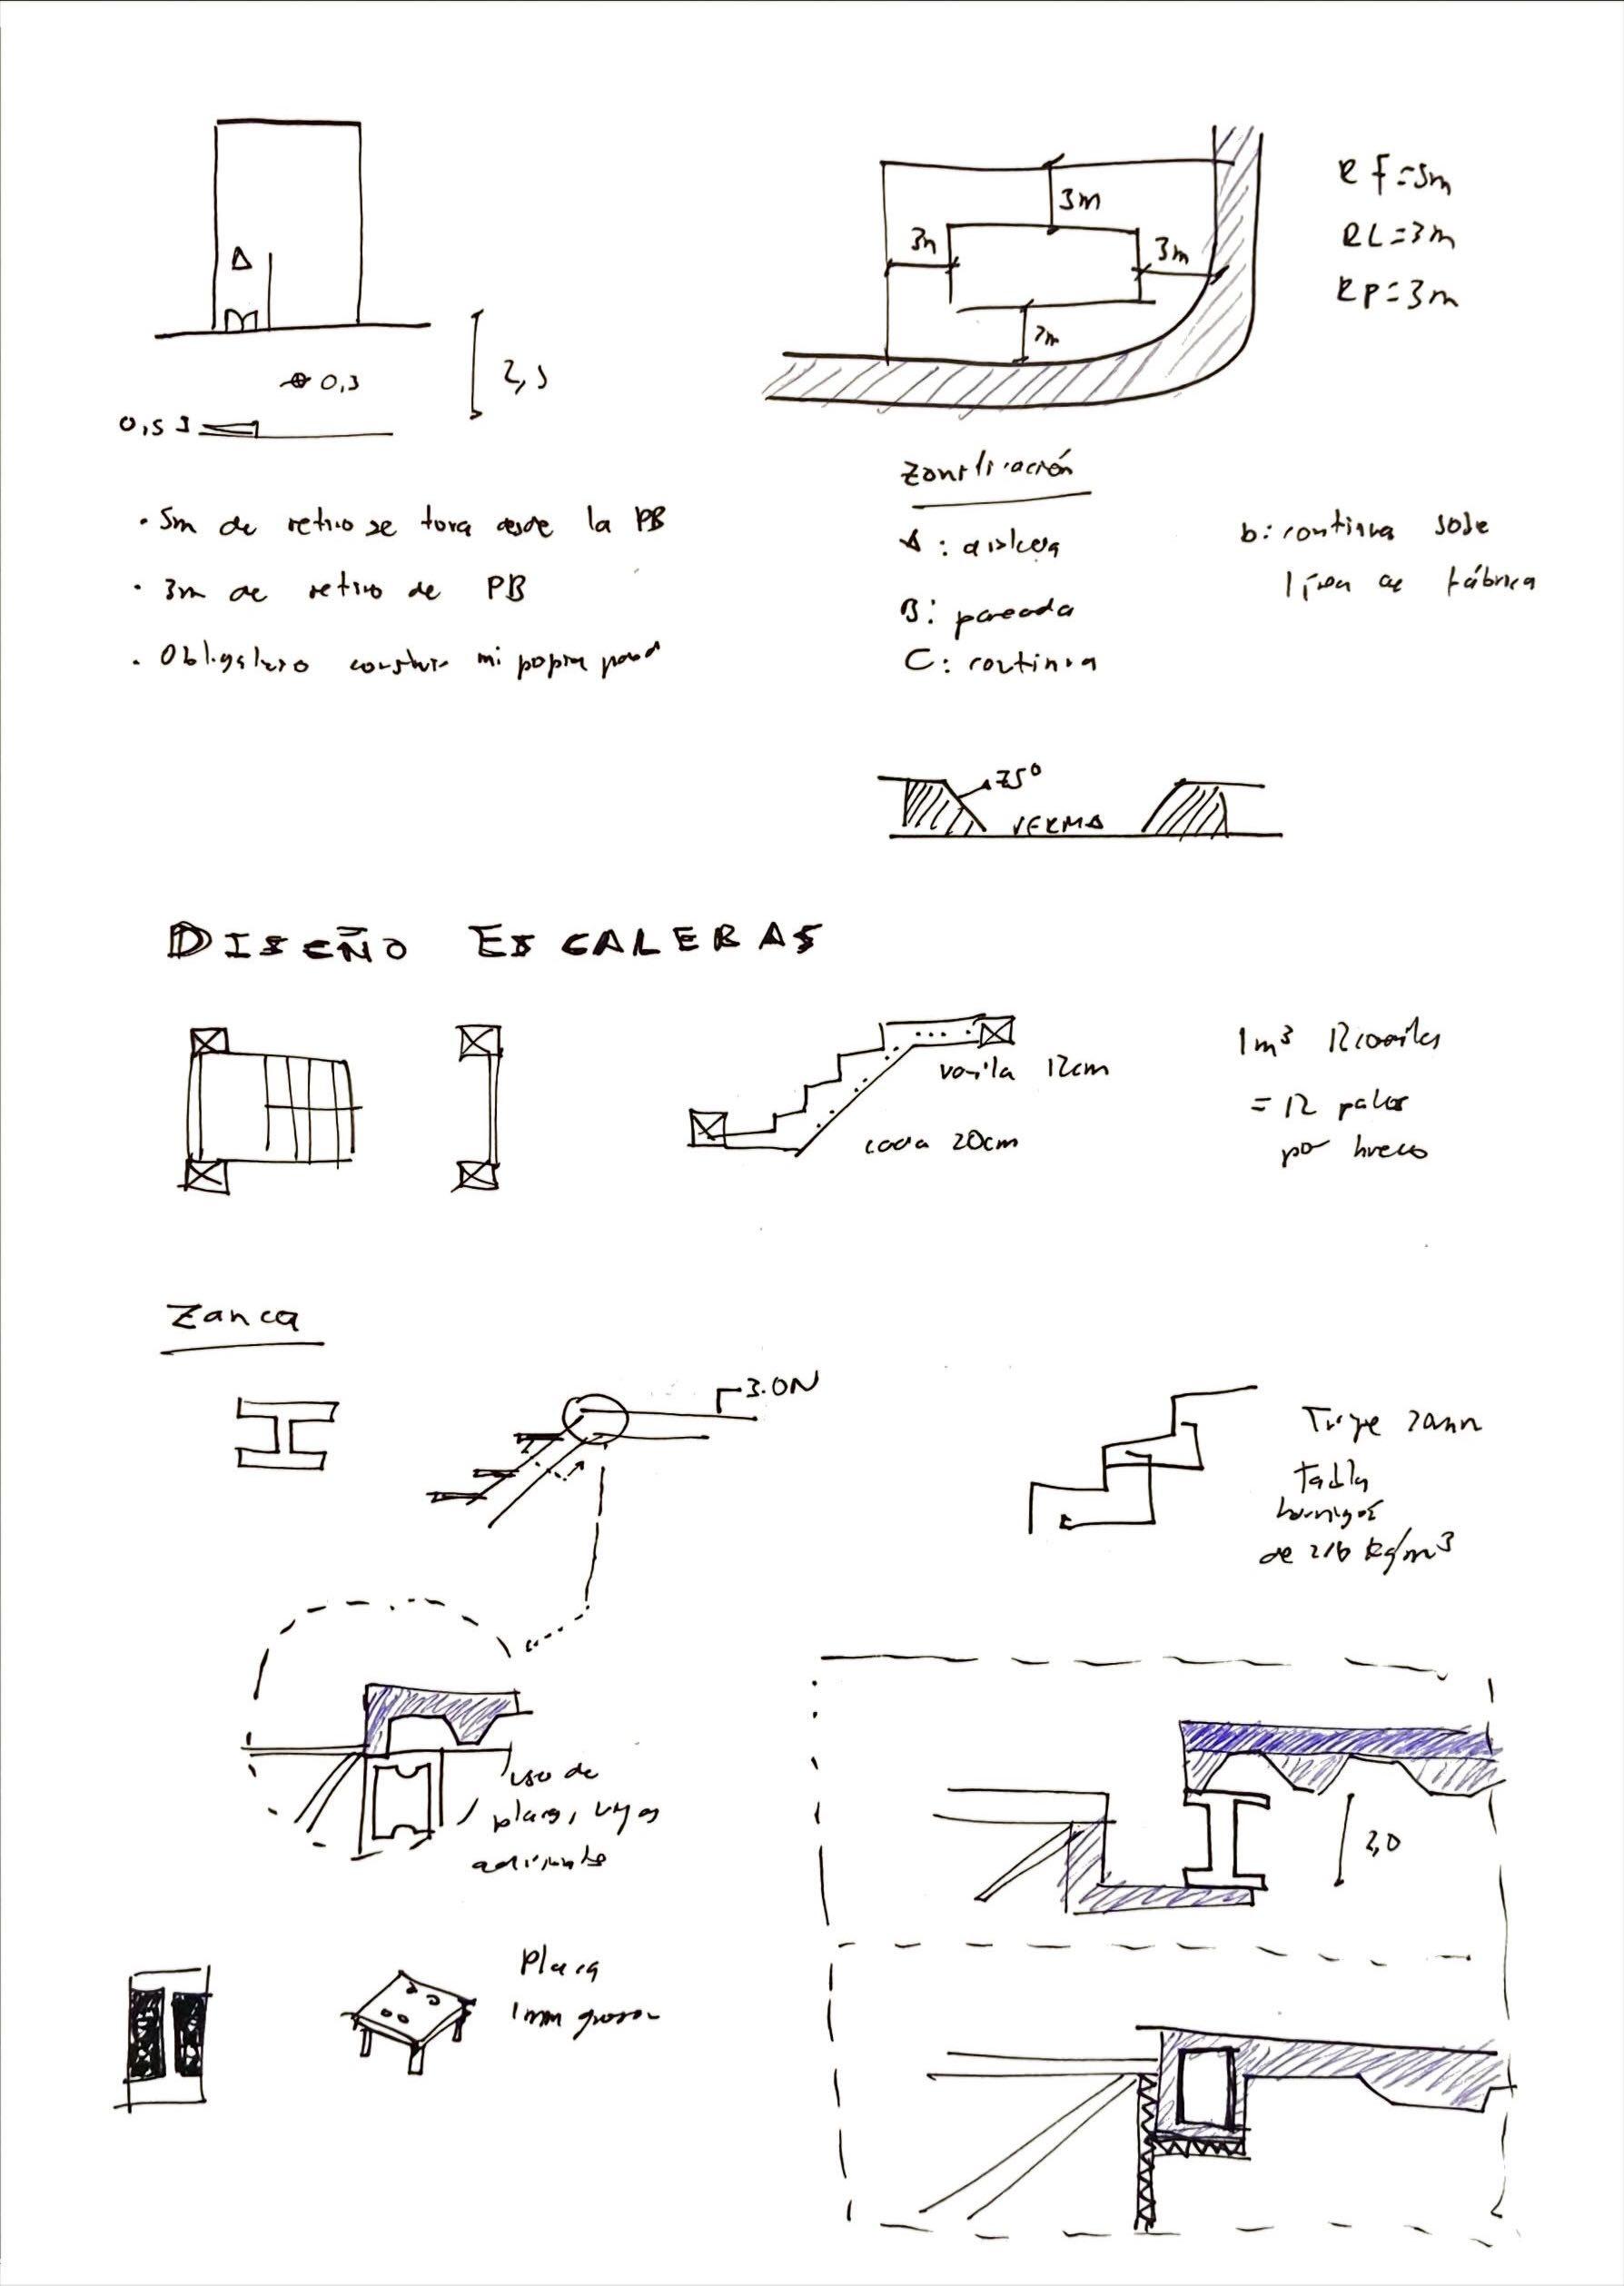 3m
3m
3m
RF=5m
RL=3m
RP=3m
0,3
2,5
0,5
Zonificación
• 5m de retiro se toma desde la PB
• 3m de retiro de PB
• Obligatorio construir mi propia pared
A: aislada
B: pareada
C: continua
b: continua sobre
línea de fábrica
75°
VERMA
DISEÑO ESCALERAS
varilla 12cm
cada 20cm
1m³ 12 varillas
= 12 palos
por hueco
Zanca
3.0N
Tabla
de 210 kg/m³
uso de
placas, vigas
2,0
Placa
1mm grosor